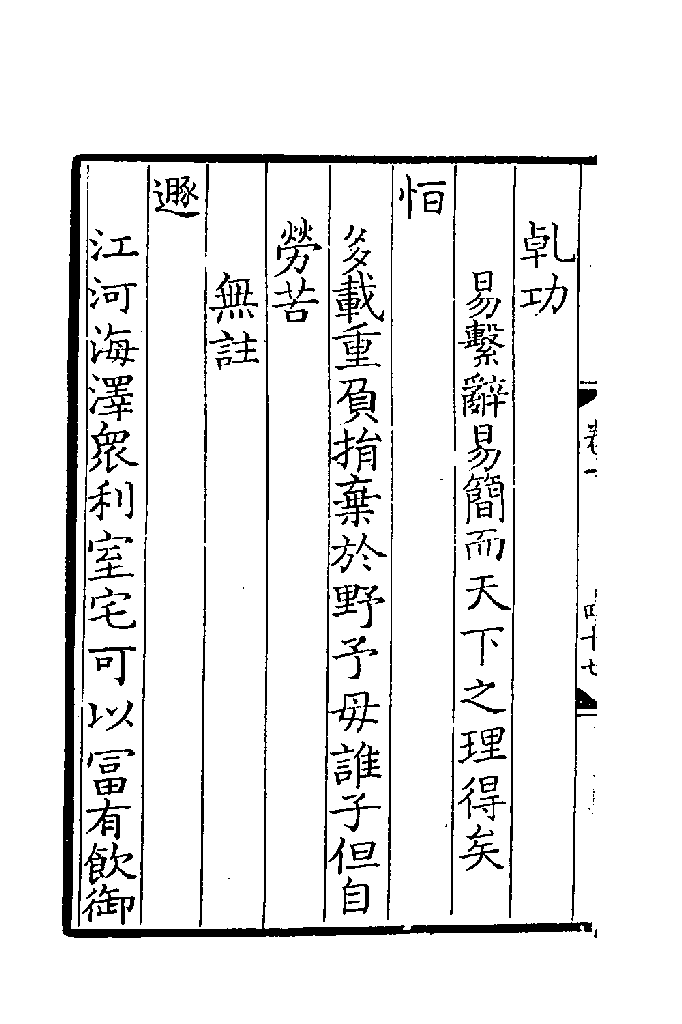 乹功
易繫辭易簡而天下之理得矣
恒
多載重負捐棄於野予母誰子但自
勞苦
無註
遯
江河海澤衆利室宅可以冨有飲御